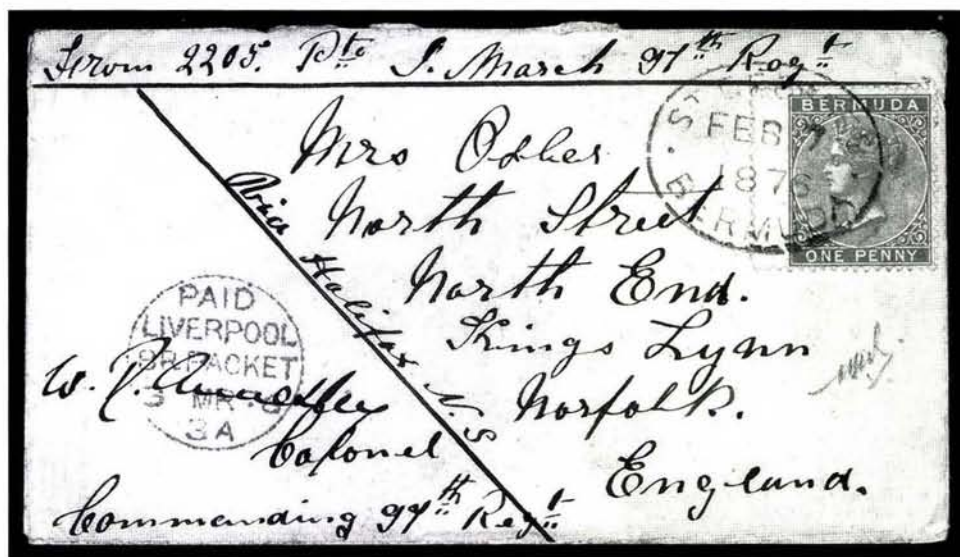 From 2205. Pte J. March 97th Regt
BERMUDA
ONE PENNY
FEB 7
1876
BERMUDA
Mrs
North Street
North End.
Kings Lynn
Norfolk.
England.
via Halifax N.S
PAID
LIVERPOOL
BR. PACKET
MR
3A
W.
Colonel
Commanding 97th Regt